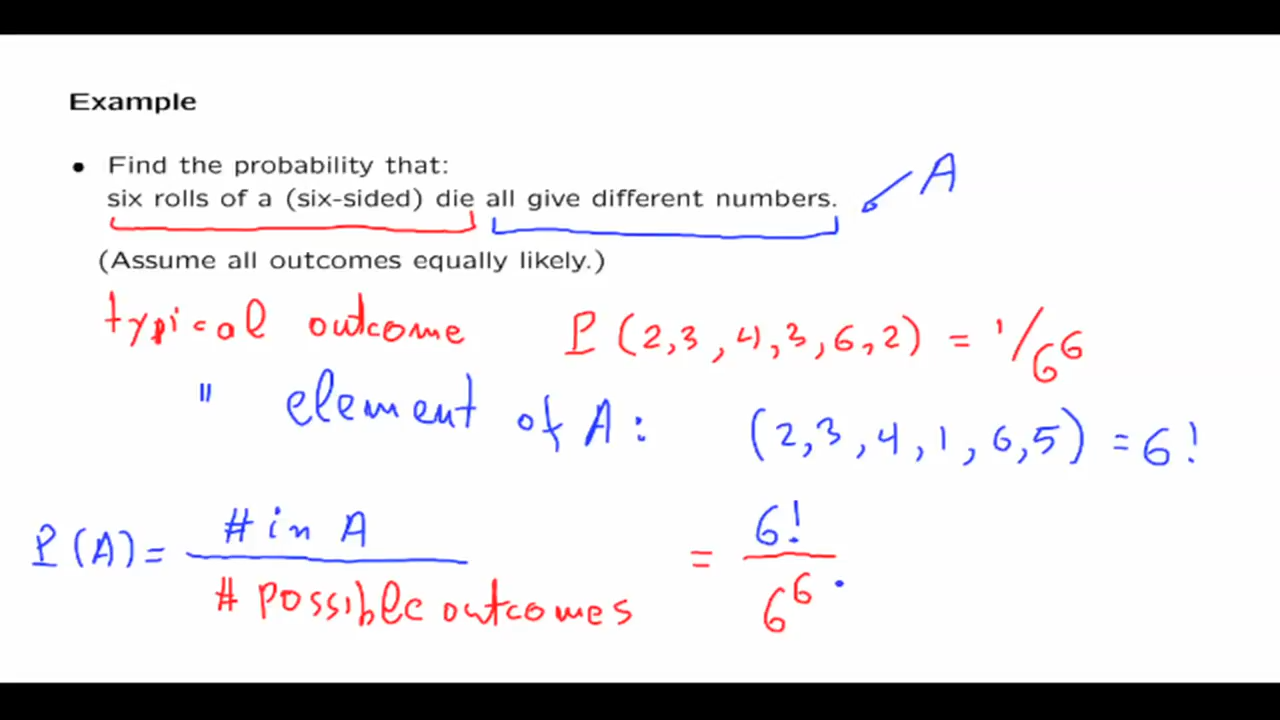 Example
• Find the probability that:
six rolls of a (six-sided) die all give different numbers. A
(Assume all outcomes equally likely.)
typical outcome P (2,3,4,3,6,2) = 1/6^6
" element of A: (2,3,4,1,6,5) = 6!
P(A) = # in A / # possible outcomes = 6! / 6^6.